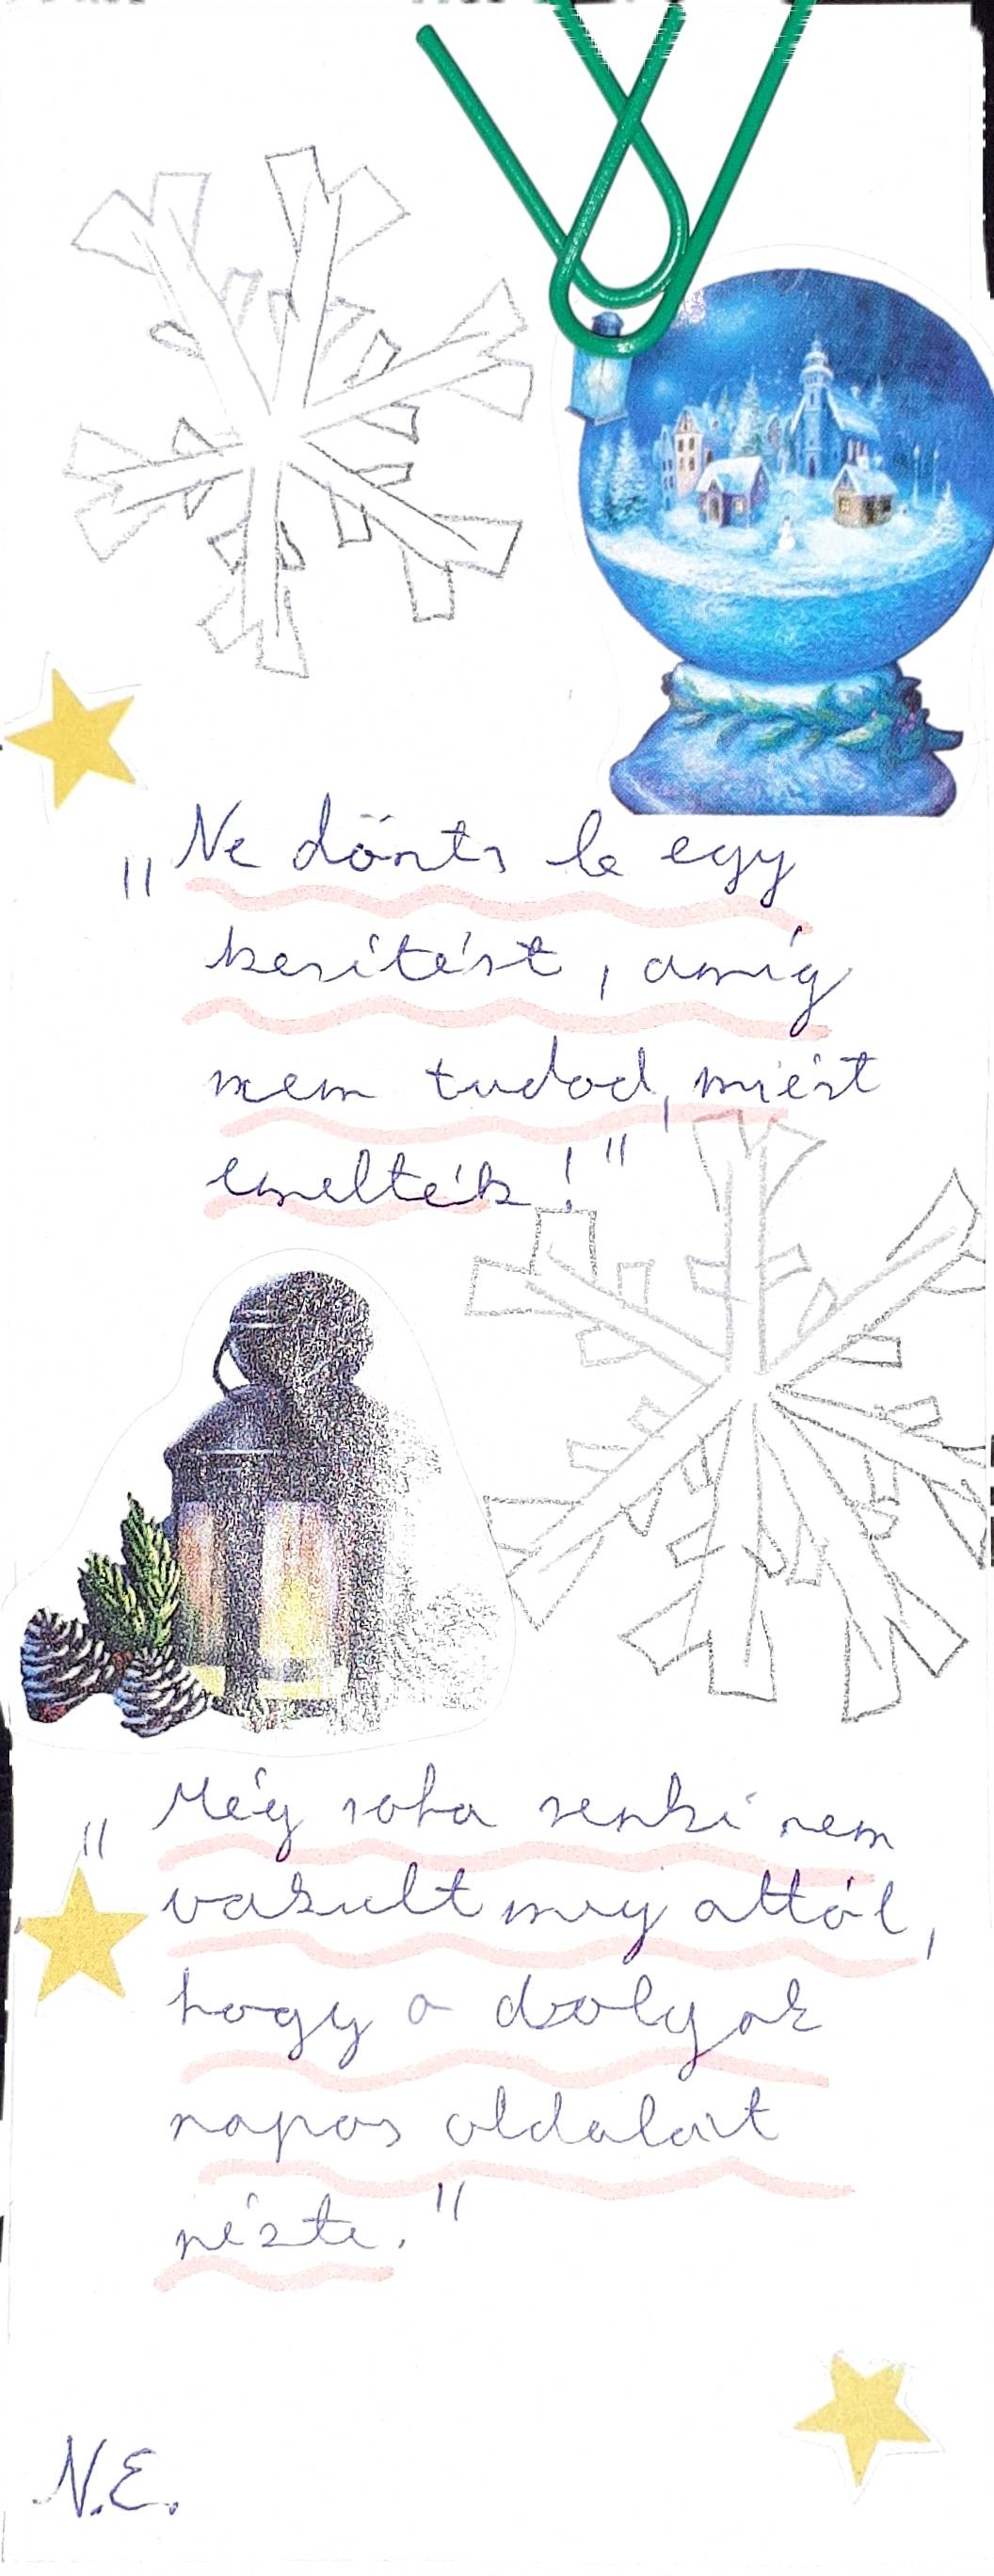 „Ne dönts le egy
kerítést, amíg
nem tudod, miért
emelték!"
„Még soha senki nem
vakult meg attól,
hogy a dolgok
napos oldalait
nézte."
N.E.